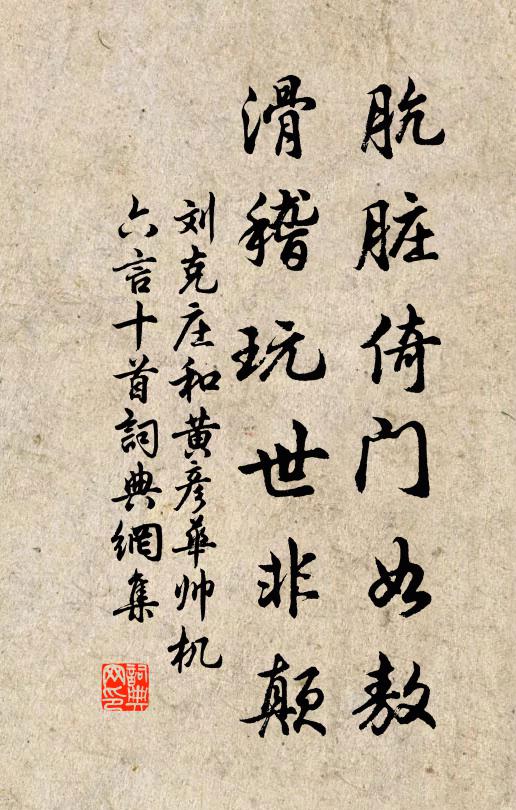 肮脏倚门如敖
滑稽玩世非颠
刘克庄和黄彦华帅机
六言十首词典網集
詞典网印